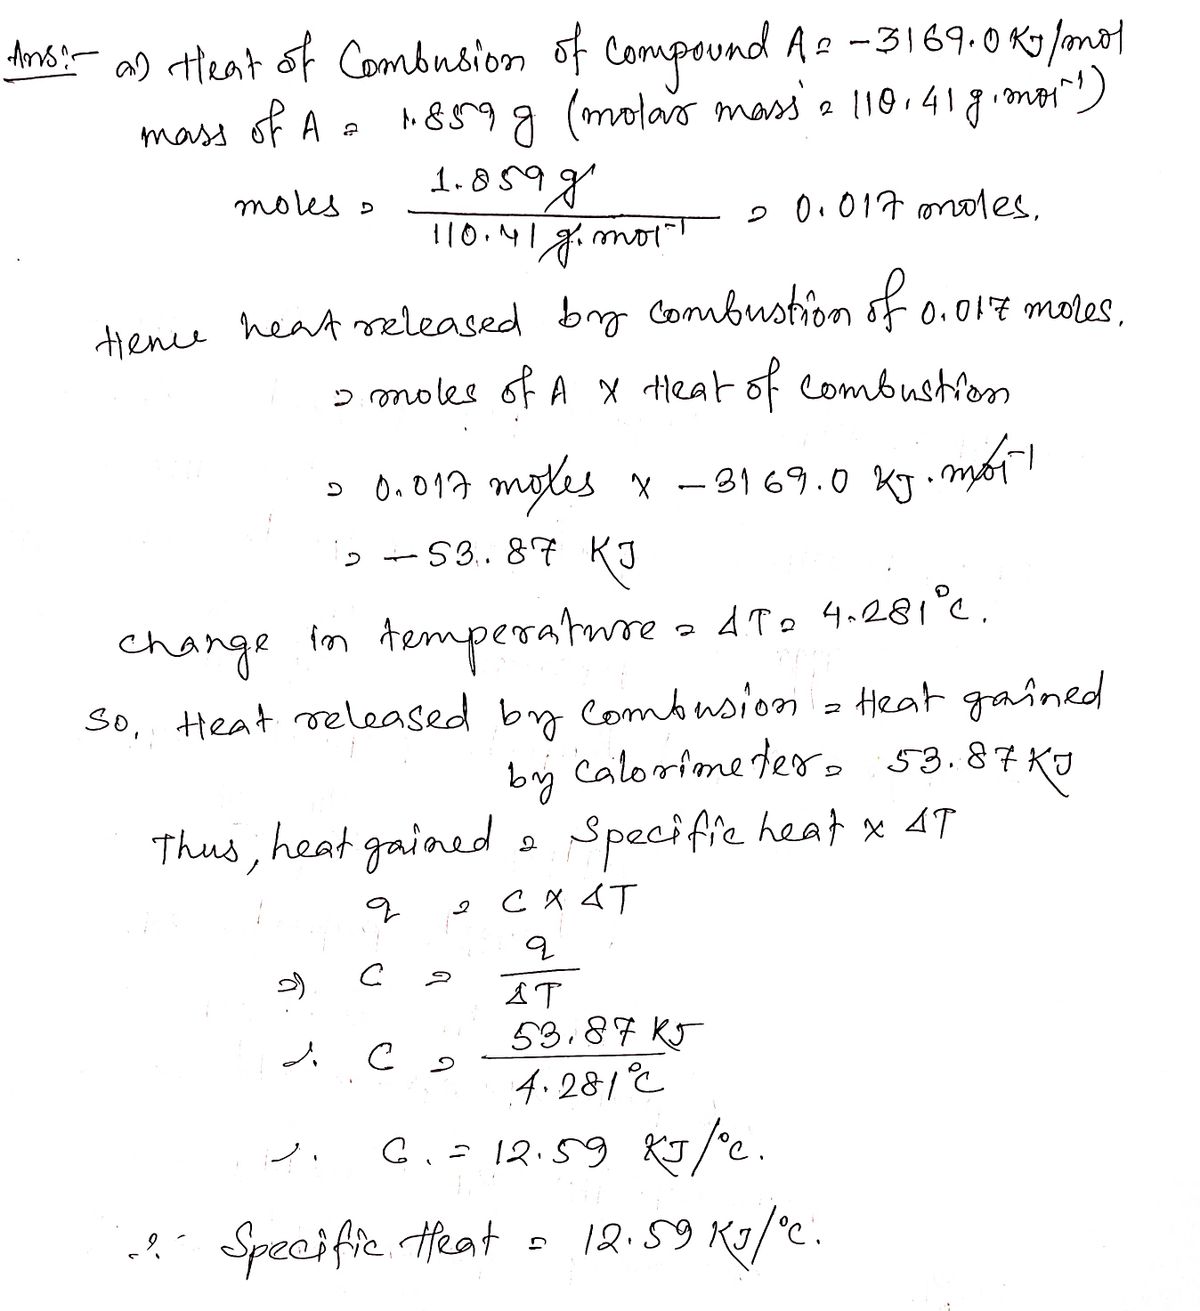 Ans:- a) Heat of Combusion of Compound A = -3169.0 KJ/mol
mass of A = 1.859 g (molar mass = 110.41 g.mol⁻¹)
moles = 1.859 g / 110.41 g.mol⁻¹ = 0.017 moles.
Hence heat released by combustion of 0.017 moles.
= moles of A x Heat of Combustion
= 0.017 moles x -3169.0 KJ.mol⁻¹
= -53.87 KJ
Change in temperature = ΔT = 4.281°C.
So, Heat released by Combusion = Heat gained
by Calorimeter = 53.87 KJ
Thus, heat gained = Specific heat x ΔT
q = C x ΔT
⇒ C = q / ΔT
∴ C = 53.87 KJ / 4.281°C
∴ C. = 12.59 KJ/°C.
∴ Specific Heat = 12.59 KJ/°C.